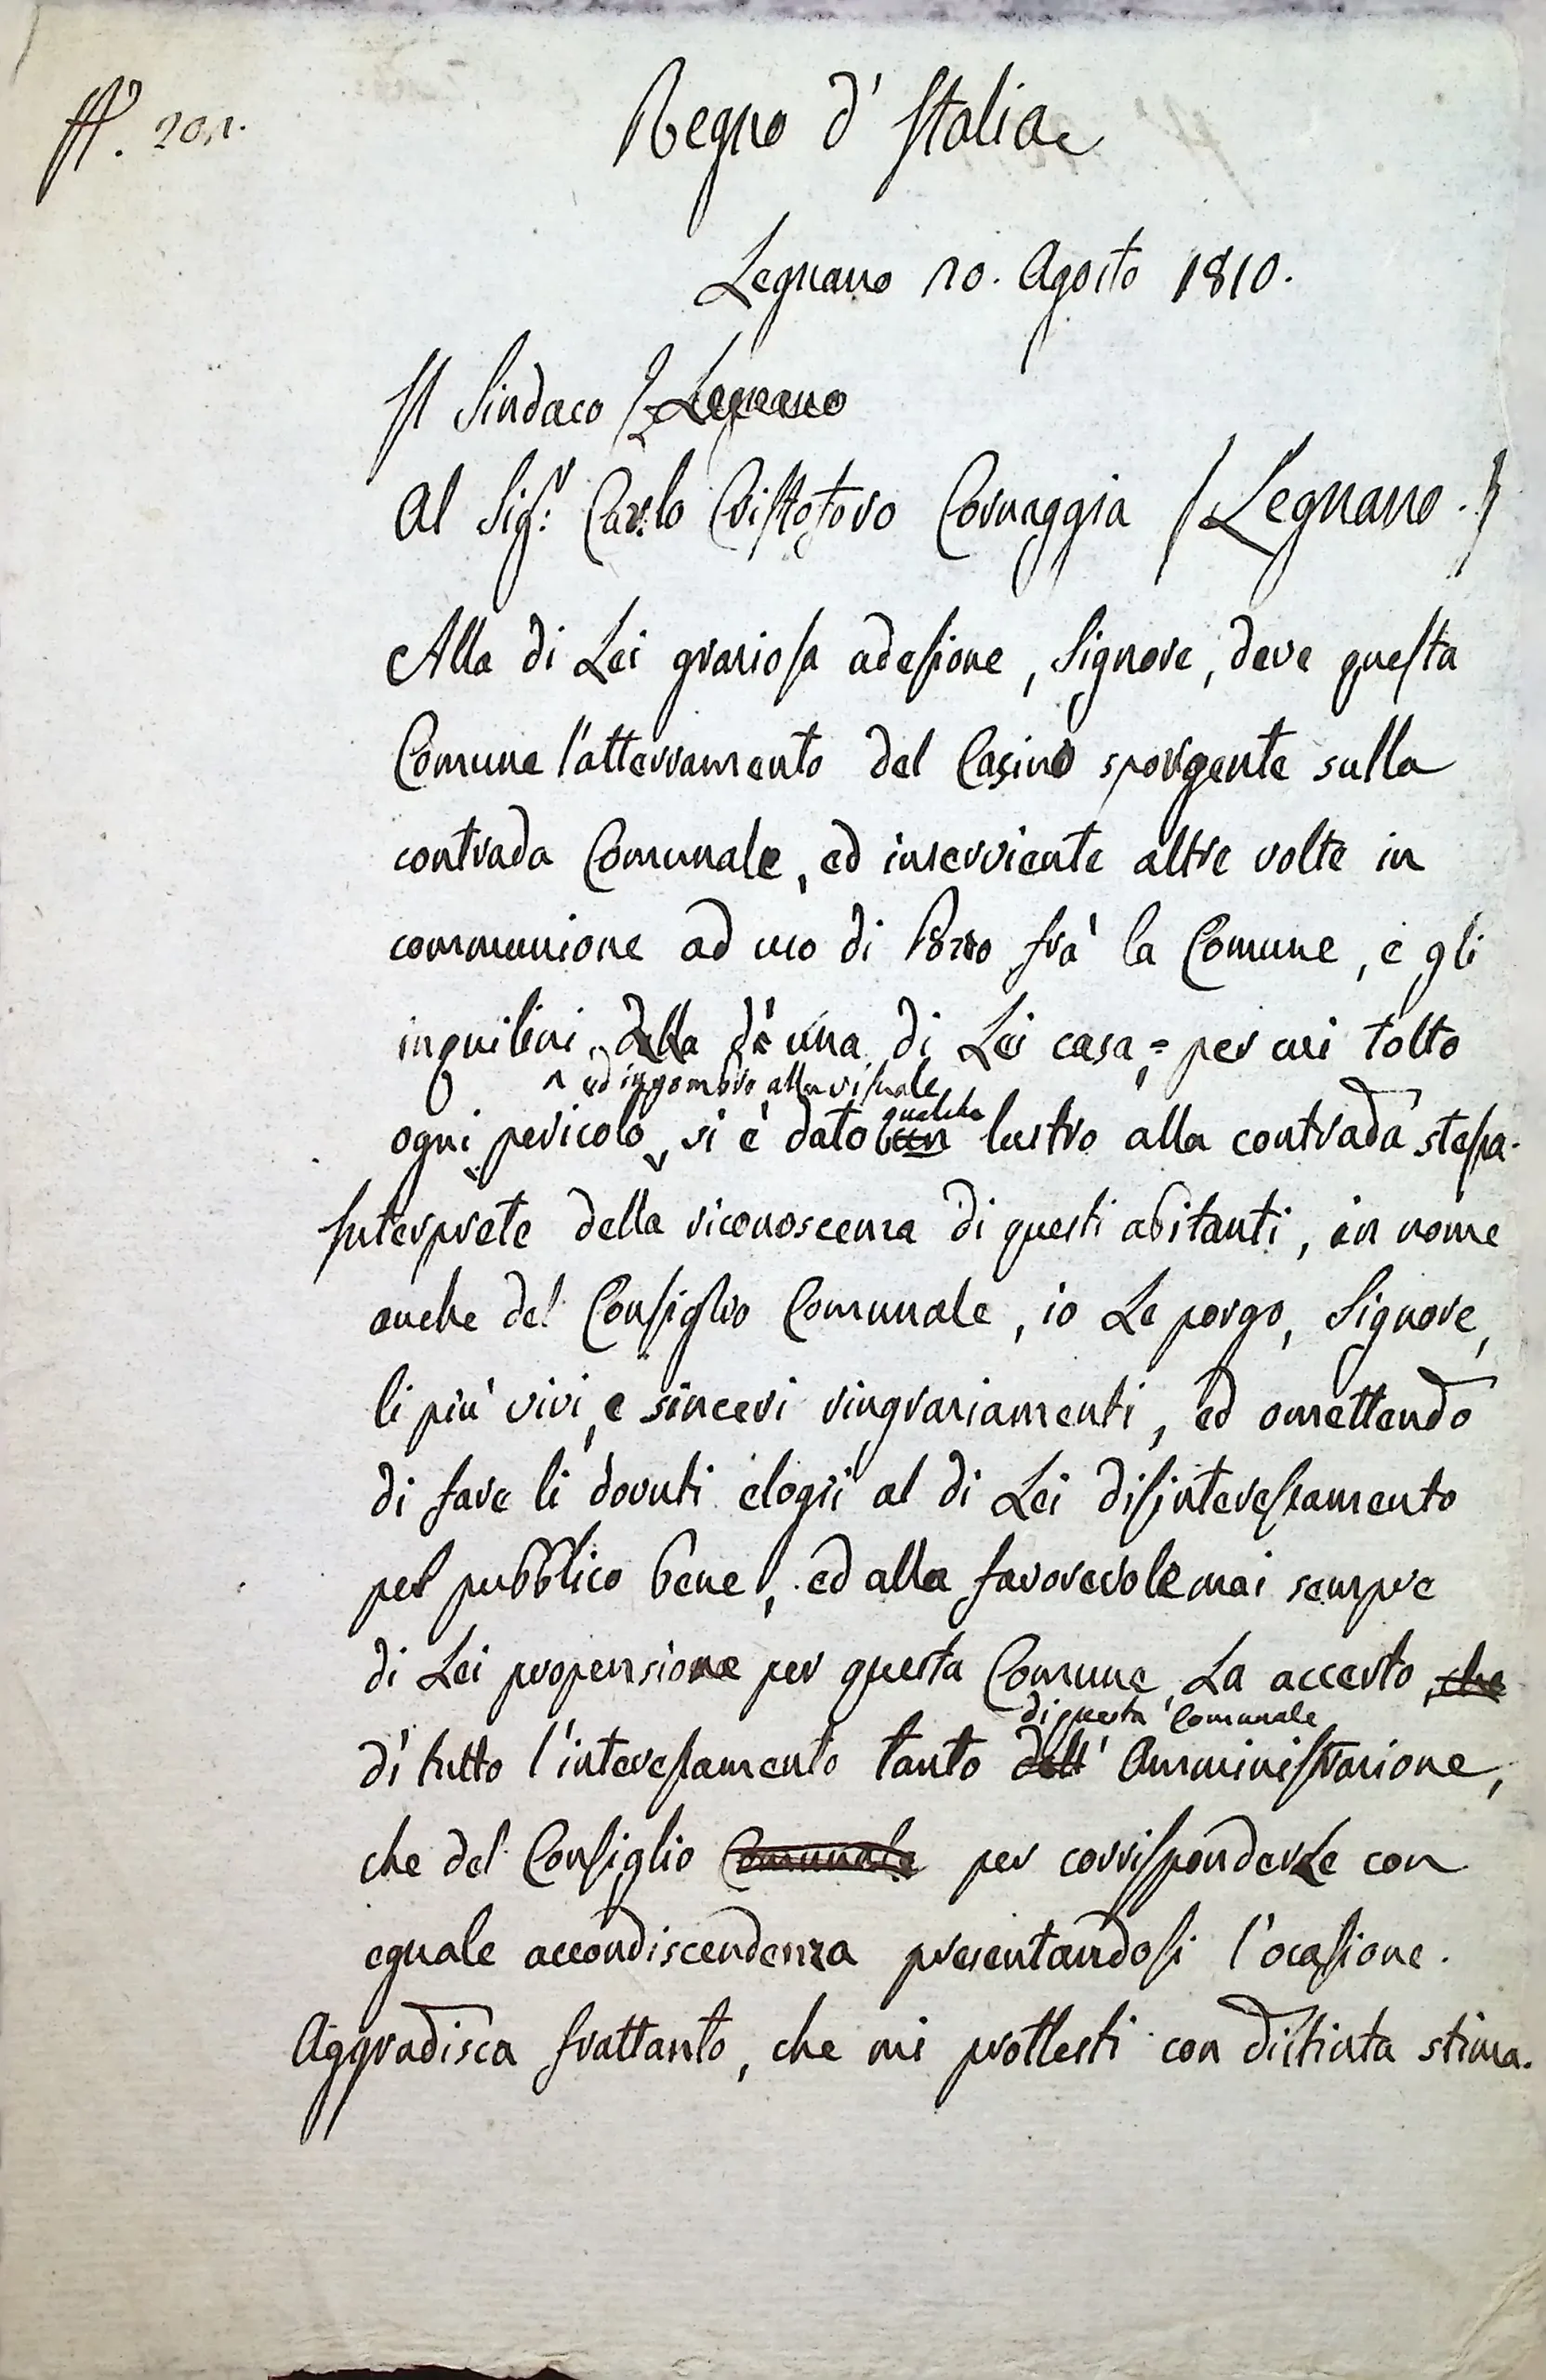 N.° 201.
Regno d'Italia
Legnano 20. Agosto 1810.
Il Sindaco di Legnano
Al Sig.r Carlo Cristoforo Cornaggia (Legnano.)
Alla di Lei graziosa adesione, Signore, deve questa
Comune l'atterramento del Casino sporgente sulla
contrada Comunale, ed inserviente altre volte in
communione ad uso di Pozzo frà la Comune, e gli
inquilini della d'una di Lei casa, = per cui tolto
ed ingombro alla visuale qualche
ogni pericolo, si è dato un lustro alla contrada stessa.
Interprete della riconoscenza di questi abitanti, in nome
anche del Consiglio Comunale, io Le porgo, Signore,
li più vivi, e sinceri ringraziamenti, ed omettendo
di fare li dovuti elogii al di Lei disinteressamento
pel pubblico bene, ed alla favorevole mai sempre
di Lei propensione per questa Comune, La accerto che
di questa Comunale
di tutto l'interessamento tanto dell' Amministrazione,
che del Consiglio Comunale per corrisponderLe con
eguale accondiscendenza presentandosi l'ocasione.
Aggradisca frattanto, che mi protesti con distinta stima.